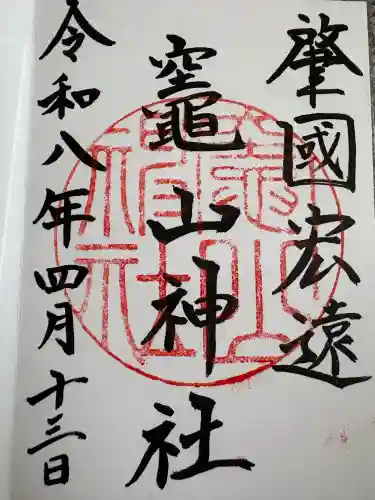 肇國宏遠
竈山神社
令和八年四月十三日